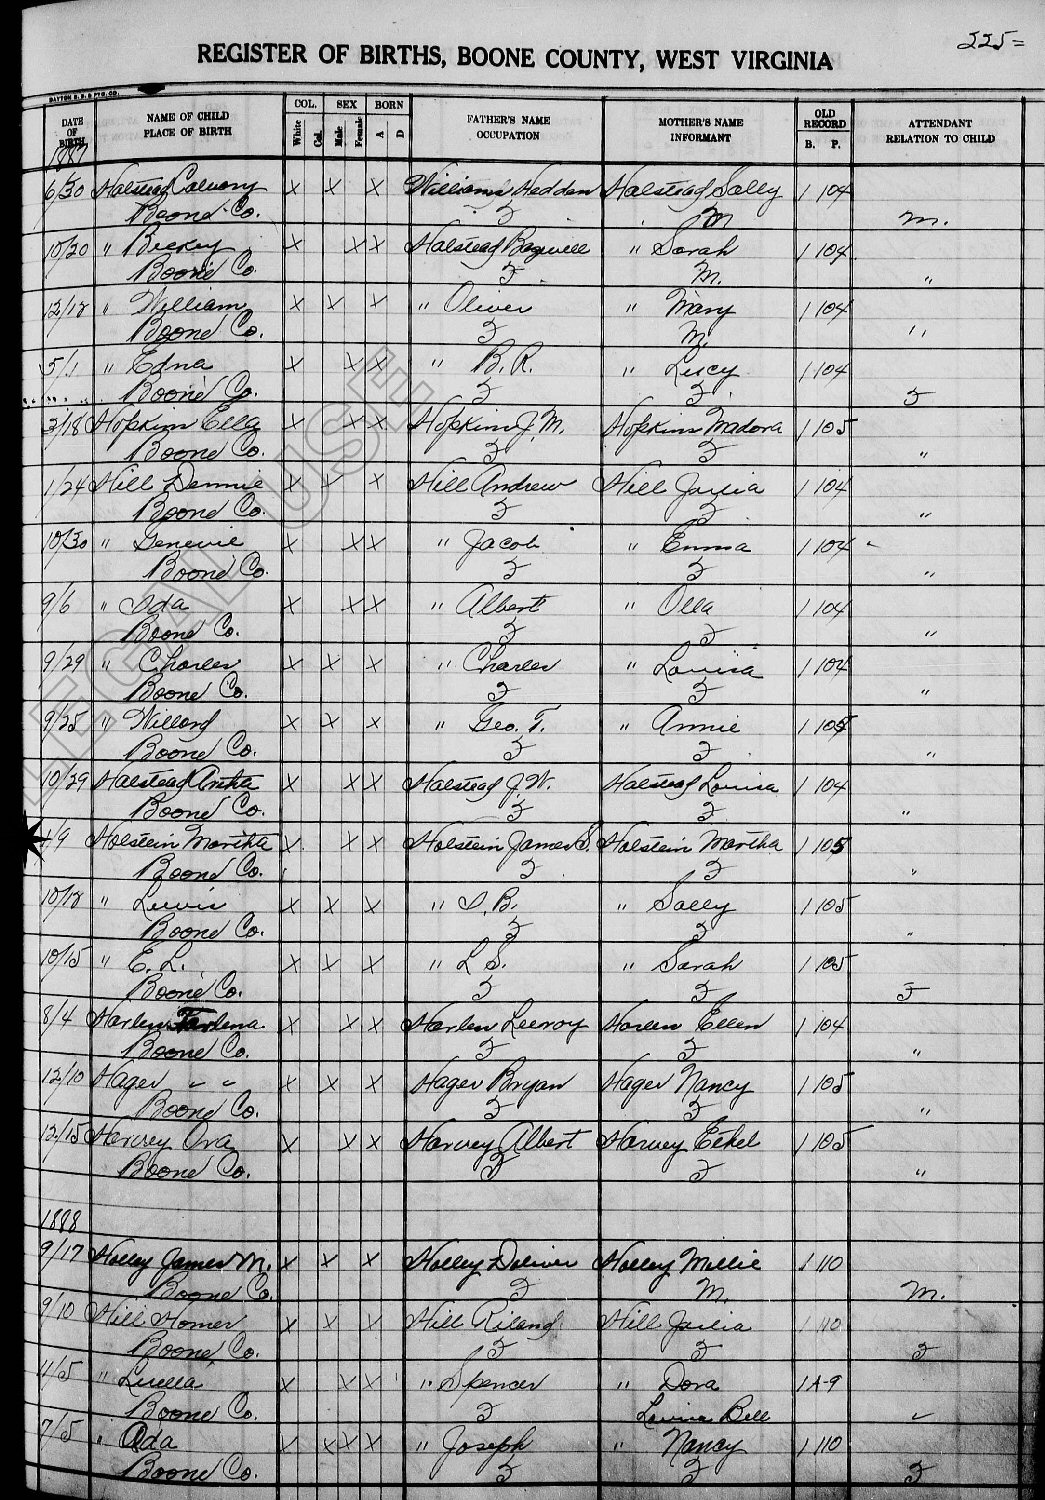 225=
REGISTER OF BIRTHS, BOONE COUNTY, WEST VIRGINIA
DATE OF BIRTH NAME OF CHILD PLACE OF BIRTH COL. White Col. SEX Male Female BORN A D FATHER'S NAME OCCUPATION MOTHER'S NAME INFORMANT OLD RECORD B. P. ATTENDANT RELATION TO CHILD
1887
6/30 Halstead Calvary X X X Williams Haddan Halstead Sally 1 104
Boone Co. F M M.
10/20 " Beckey X X X Halstead Bagwell " Sarah 1 104
Boone Co. F M. "
12/18 " William X X X " Oliver " Mary 1 104
Boone Co. F M. "
5/1 " Edna X X X " B.R. " Lucy 1 104
Boone Co. F F F
3/18 Hopkins Ella X X X Hopkins J.M. Hopkins Madora 1 105
Boone Co. F F "
1/24 Hill Dennie X X X Hill Andrew Hill Julia 1 104
Boone Co. F F "
10/30 " Genevie X X X " Jacob " Emma 1 104
Boone Co. F F "
9/6 " Ida X X X " Albert " Olla 1 104
Boone Co. F F "
9/29 " Charles X X X " Charles " Louisa 1 104
Boone Co. F F "
9/25 " Willard X X X " Geo. T. " Annie 1 105
Boone Co. F F "
10/29 Halstead X X X Halstead J.W. Halstead Louisa 1 104
Boone Co. F F "
4/9 Holstein Martha X X X Holstein James S. Holstein Martha 1 105
Boone Co. F F "
10/18 " Lewis X X X " I.B. " Sally 1 105
Boone Co. F F "
10/15 " E.L. X X X " L.S. " Sarah 1 105
Boone Co. F F F
8/4 Harless X X X Harless Leeroy Harless Ellen 1 104
Boone Co. F F "
12/10 Hager " " X X X Hager Bryan Hager Nancy 1 105
Boone Co. F F "
12/15 Harvey Ova X X X Harvey Albert Harvey Ethel 1 105
Boone Co. F F "
1888
9/17 Holley James M. X X X Holley Doliver Holley Millie 1 110
Boone Co. F M. M.
9/10 Hill Homer X X X Hill Riland Hill Julia 1 110
Boone Co. F F F
4/5 " Luella X X X " Spencer " Dora 1 A-9
Boone Co. F Bell "
7/5 " Ada X X X X " Joseph " Nancy 1 110
Boone Co. F F F
LEGAL USE